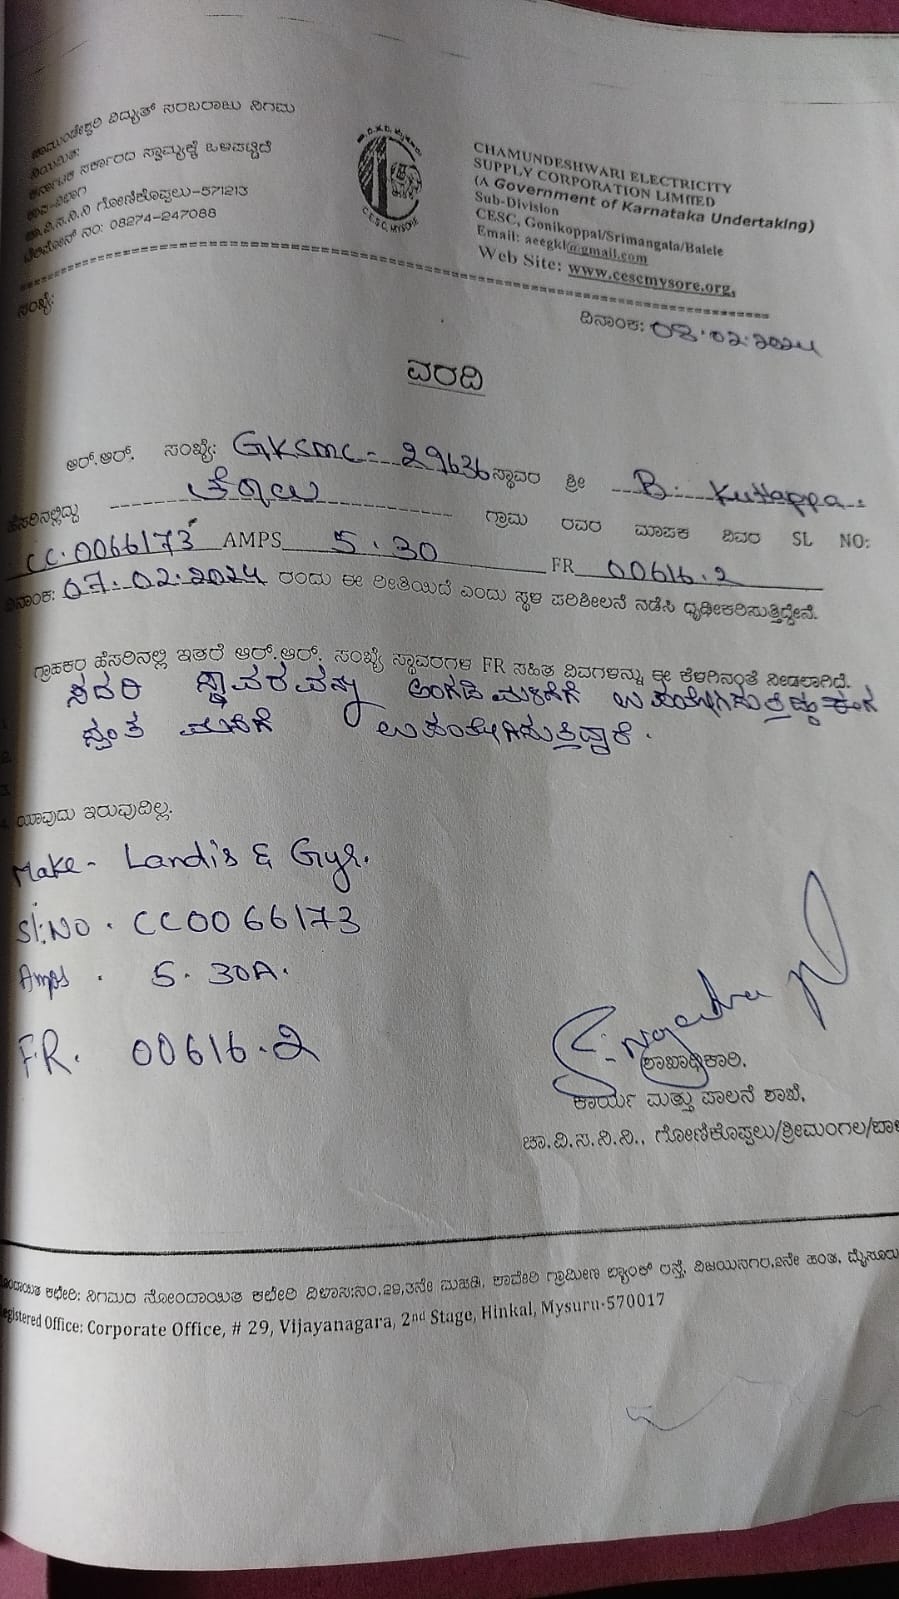 ಚಾಮುಂಡೇಶ್ವರಿ ವಿದ್ಯುತ್ ಸರಬರಾಜು ನಿಗಮ
ನಿಯಮಿತ
ಕರ್ನಾಟಕ ಸರ್ಕಾರದ ಸ್ವಾಮ್ಯಕ್ಕೆ ಒಳಪಟ್ಟಿದೆ
ಉಪ-ವಿಭಾಗ
ಚಾ.ವಿ.ಸ.ನಿ.ನಿ ಗೋಣಿಕೊಪ್ಪಲು-571213
ಟೆಲಿಪೋನ್ ನಂ: 08274-247088
CESC, MYSORE
CHAMUNDESHWARI ELECTRICITY
SUPPLY CORPORATION LIMITED
(A Government of Karnataka Undertaking)
Sub-Division
CESC, Gonikoppal/Srimangala/Balele
Email: aeegkl@gmail.com
Web Site: www.cescmysore.org,
ಸಂಖ್ಯೆ:
ದಿನಾಂಕ: 08.02.2024
ವರದಿ
ಆರ್.ಆರ್. ಸಂಖ್ಯೆ: GKSMC-29636 ಸ್ಥಾವರ ಶ್ರೀ B. Kuttappa.
ಹೆಸರಿನಲ್ಲಿದ್ದು ಗ್ರಾಮ ರವರ ಮಾಪಕ ವಿವರ SL NO:
CC.0066173 AMPS 5.30 FR 00616.2
ದಿನಾಂಕ: 07.02.2024 ರಂದು ಈ ರೀತಿಯಿದೆ ಎಂದು ಸ್ಥಳ ಪರಿಶೀಲನೆ ನಡೆಸಿ ಧೃಢೀಕರಿಸುತ್ತಿದ್ದೇನೆ.
ಗ್ರಾಹಕರ ಹೆಸರಿನಲ್ಲಿ ಇತರೆ ಆರ್.ಆರ್. ಸಂಖ್ಯೆ ಸ್ಥಾವರಗಳ FR ಸಹಿತ ವಿವಗಳನ್ನು ಈ ಕೆಳಗಿನಂತೆ ನೀಡಲಾಗಿದೆ.
ಸದರಿ ಸ್ಥಾವರವನ್ನು ಅಂಗಡಿ ಮಳಿಗೆಗೆ ಉಪಯೋಗಿಸುತ್ತಿದ್ದು ಈಗ
ಸ್ವಂತ ಮನೆಗೆ ಉಪಯೋಗಿಸುತ್ತಿದ್ದಾರೆ.
ಯಾವುದು ಇರುವುದಿಲ್ಲ.
Make - Landis & Gyr.
Sl:No. CC0066173
Amps. 5.30A.
F.R. 00616.2
ಶಾಖಾಧಿಕಾರಿ.
ಕಾರ್ಯ ಮತ್ತು ಪಾಲನೆ ಶಾಖೆ,
ಚಾ.ವಿ.ಸ.ನಿ.ನಿ., ಗೋಣಿಕೊಪ್ಪಲು/ಶ್ರೀಮಂಗಲ/
ಕಛೇರಿ: ನಿಗಮದ ನೋಂದಾಯಿತ ಕಛೇರಿ ವಿಳಾಸ:ನಂ.29, ಕಾವೇರಿ ಗ್ರಾಮೀಣ ಬ್ಯಾಂಕ್ ರಸ್ತೆ, ವಿಜಯನಗರ,2ನೇ ಹಂತ, ಮೈಸೂರು
Registered Office: Corporate Office, # 29, Vijayanagara, 2nd Stage, Hinkal, Mysuru-570017